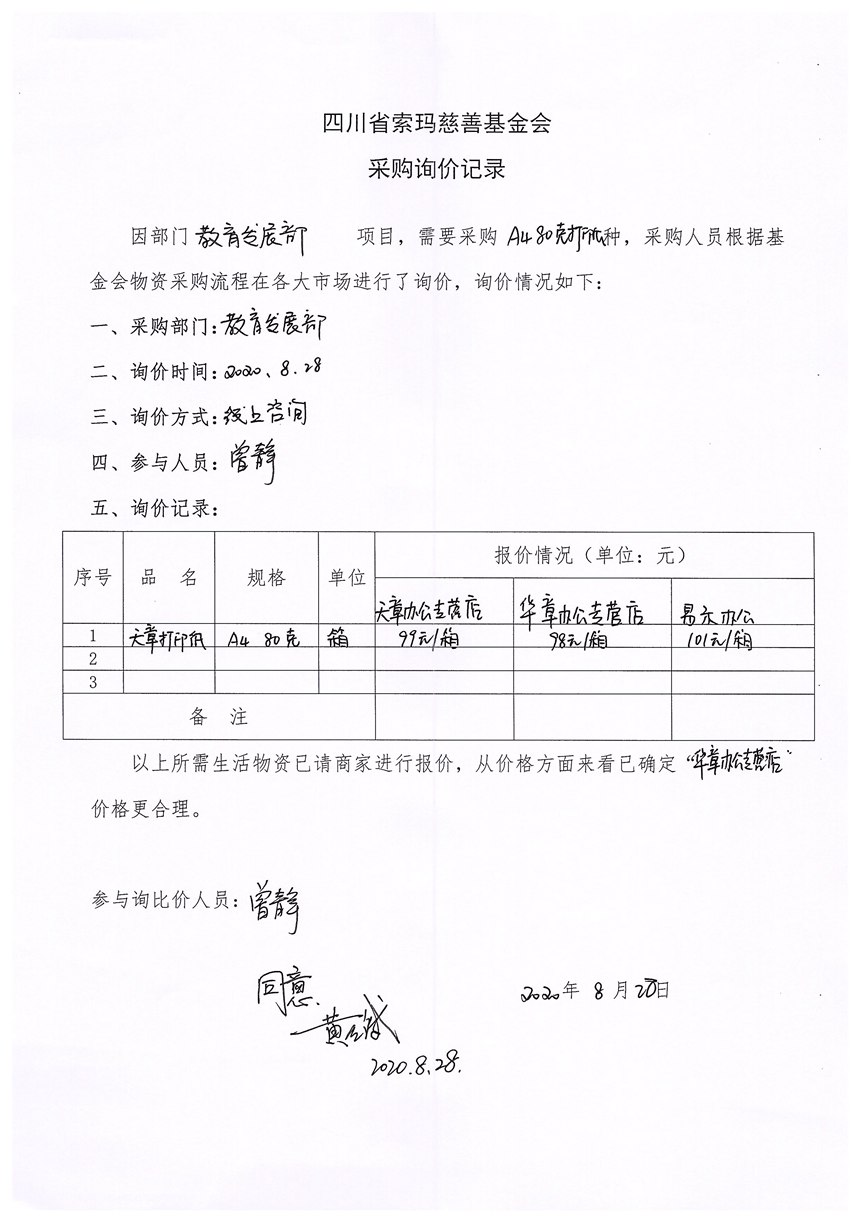 四川省索玛慈善基金会
采购询价记录
因部门 教育发展部 项目，需要采购 A4 80克打印纸种，采购人员根据基
金会物资采购流程在各大市场进行了询价，询价情况如下：
一、采购部门：教育发展部
二、询价时间：2020、8.28
三、询价方式：线上咨询
四、参与人员：曾静
五、询价记录：
序号 品 名 规格 单位 报价情况（单位：元）
天章办公专营店 华章办公专营店 易永办公
1 天章打印纸 A4 80克 箱 99元/箱 98元/箱 101元/箱
2
3
备 注
以上所需生活物资已请商家进行报价，从价格方面来看已确定 “华章办公专营店”
价格更合理。
参与询比价人员：曾静
同意.
2020年 8 月 28日
黄
2020.8.28.